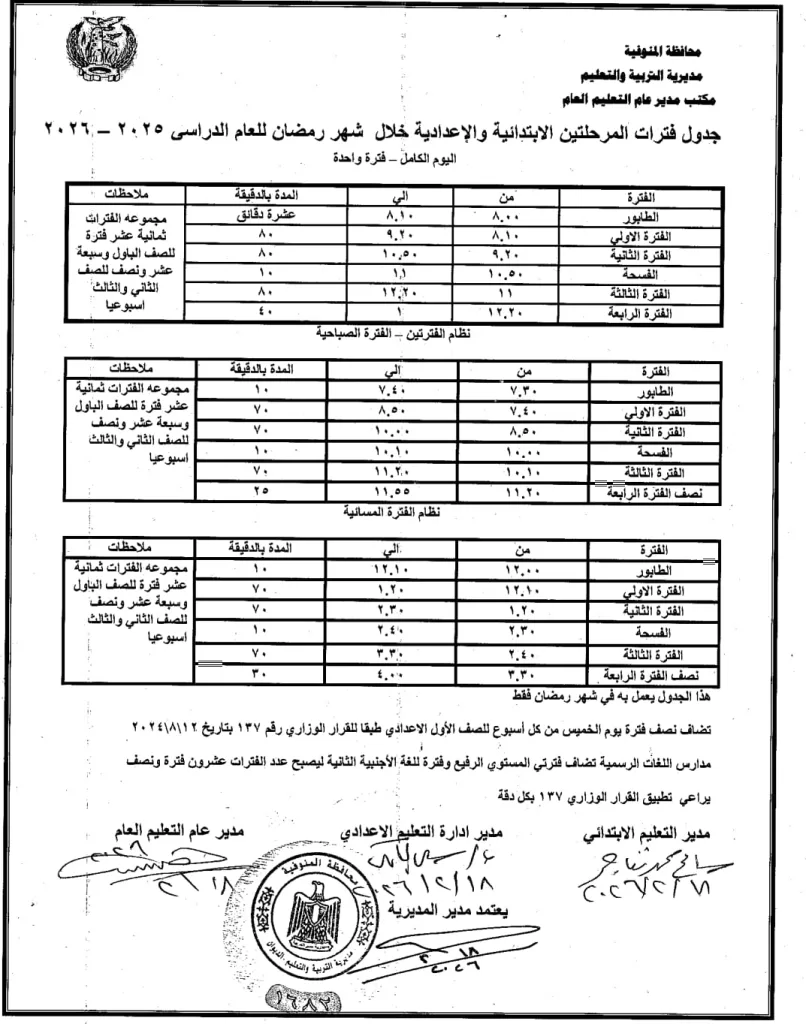 محافظة المنوفية
مديرية التربية والتعليم
مكتب مدير عام التعليم العام
جدول فترات المرحلتين الابتدائية والإعدادية خلال شهر رمضان للعام الدراسى ٢٠٢٥ – ٢٠٢٦
اليوم الكامل – فترة واحدة
الفترة من الي المدة بالدقيقة ملاحظات
الطابور ٨.٠٠ ٨.١٠ عشرة دقائق مجموعه الفترات
الفترة الاولي ٨.١٠ ٩.٢٠ ٨٠ ثمانية عشر فترة
الفترة الثانية ٩.٢٠ ١٠.٥٠ ٨٠ للصف الباول وسبعة
الفسحة ١٠.٥٠ ١,١ ١٠ عشر ونصف للصف
الفترة الثالثة ١١ ١٢.٢٠ ٨٠ الثاني والثالث
الفترة الرابعة ١٢.٢٠ ١ ٤٠ اسبوعيا
نظام الفترتين – الفترة الصباحية
الفترة من الي المدة بالدقيقة ملاحظات
الطابور ٧.٣٠ ٧.٤٠ ١٠ مجموعه الفترات ثمانية
الفترة الاولي ٧.٤٠ ٨.٥٠ ٧٠ عشر فترة للصف الباول
الفترة الثانية ٨.٥٠ ١٠.٠٠ ٧٠ وسبعة عشر ونصف
الفسحة ١٠.٠٠ ١٠.١٠ ١٠ للصف الثاني والثالث
الفترة الثالثة ١٠.١٠ ١١.٢٠ ٧٠ اسبوعيا
نصف الفترة الرابعة ١١.٢٠ ١١.٥٥ ٢٥
نظام الفترة المسائية
الفترة من الي المدة بالدقيقة ملاحظات
الطابور ١٢.٠٠ ١٢.١٠ ١٠ مجموعه الفترات ثمانية
الفترة الاولي ١٢.١٠ ١.٢٠ ٧٠ عشر فترة للصف الباول
الفترة الثانية ١.٢٠ ٢.٣٠ ٧٠ وسبعة عشر ونصف
الفسحة ٢.٣٠ ٢.٤٠ ١٠ للصف الثاني والثالث
الفترة الثالثة ٢.٤٠ ٣.٣٠ ٧٠ اسبوعيا
نصف الفترة الرابعة ٣.٣٠ ٤.٠٠ ٣٠
هذا الجدول يعمل به في شهر رمضان فقط
تضاف نصف فترة يوم الخميس من كل أسبوع للصف الأول الاعدادي طبقا للقرار الوزاري رقم ١٣٧ بتاريخ ١٢\٨\٢٠٢٤
مدارس اللغات الرسمية تضاف فترتي المستوي الرفيع وفترة للغة الأجنبية الثانية ليصبح عدد الفترات عشرون فترة ونصف
يراعي تطبيق القرار الوزاري ١٣٧ بكل دقة
مدير التعليم الابتدائي مدير ادارة التعليم الاعدادي مدير عام التعليم العام
يعتمد مدير المديرية
محافظة المنوفية
مديرية التربية والتعليم الديوان
١٦٨٢